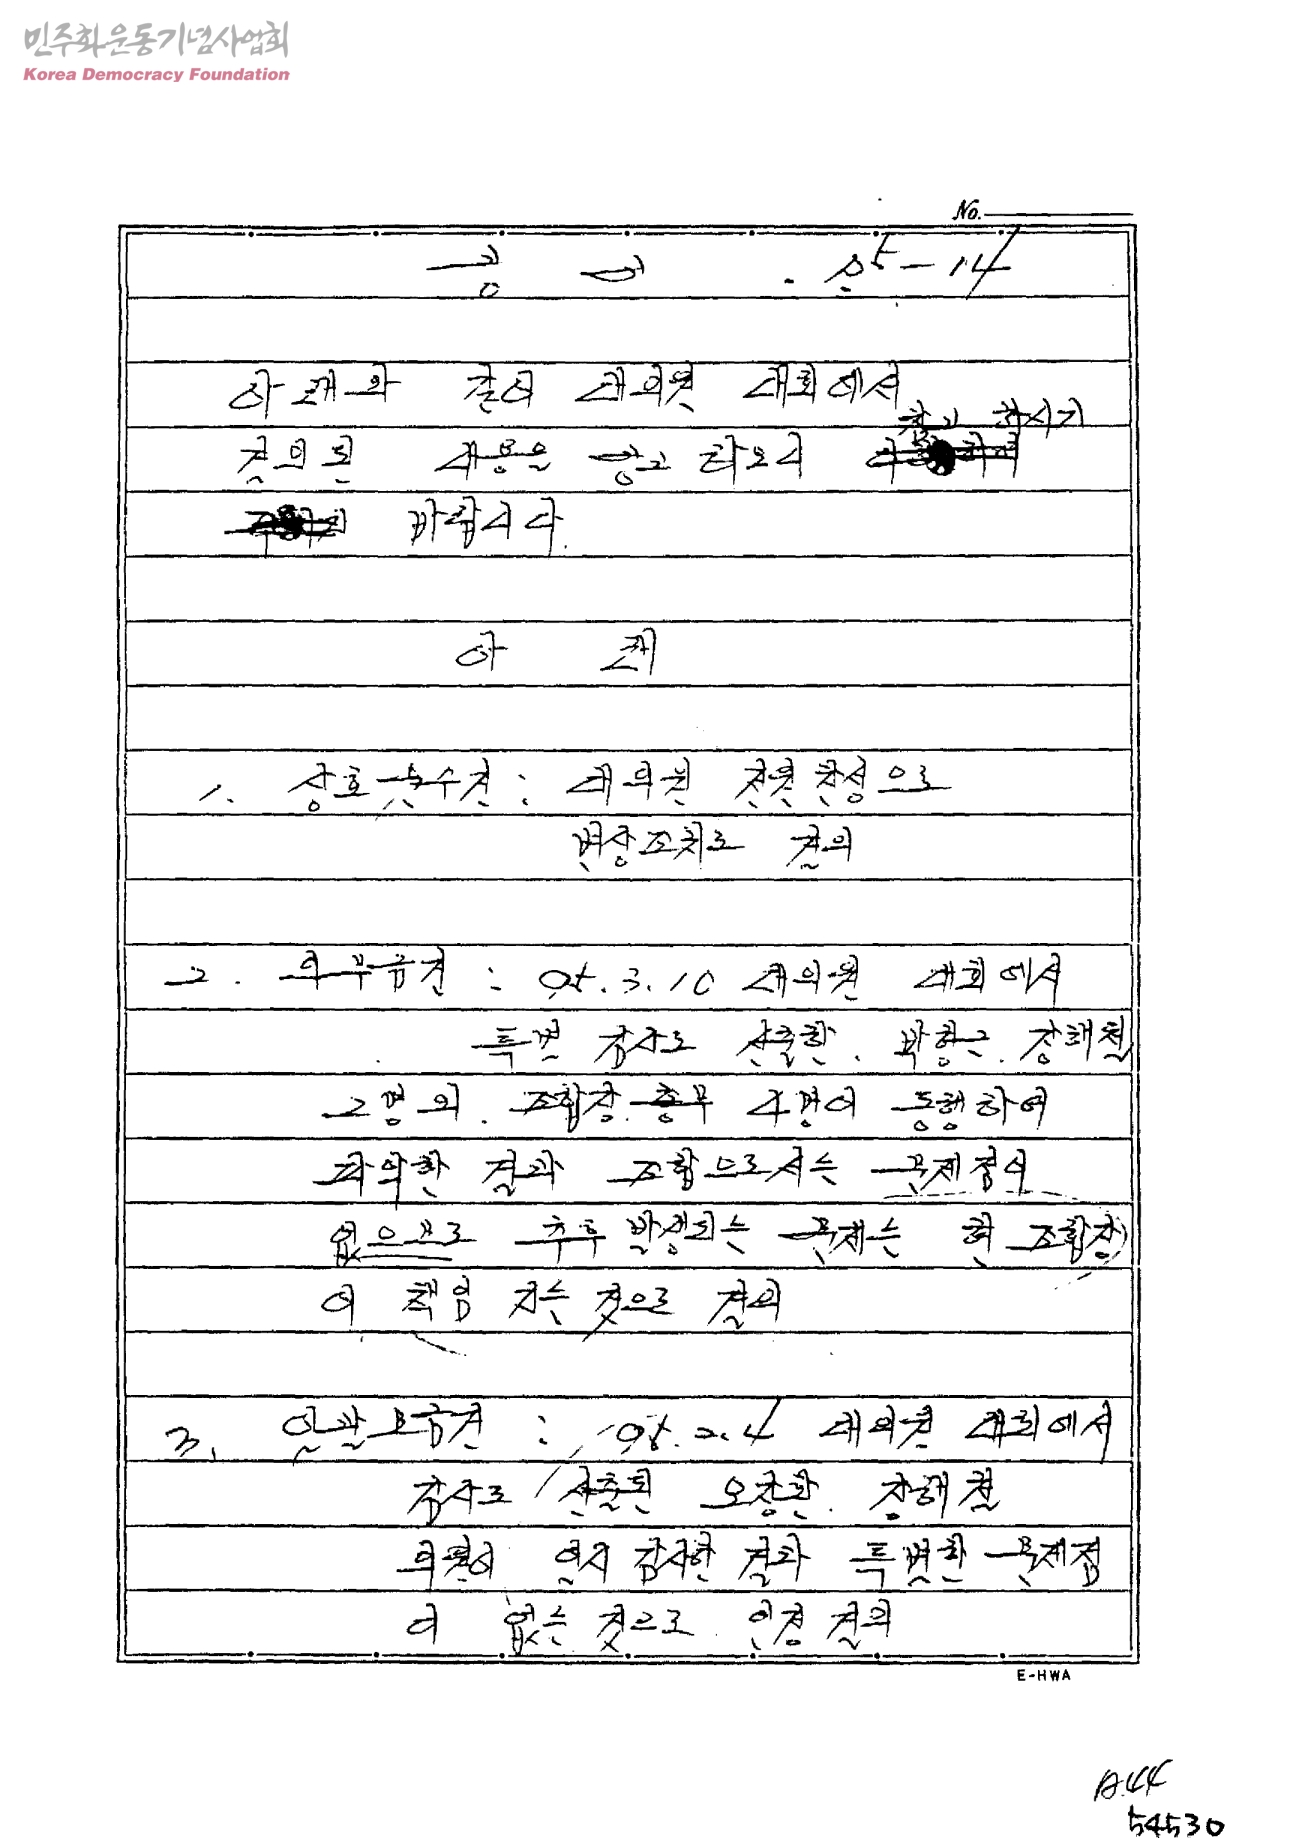 민주화운동기념사업회
Korea Democracy Foundation
No.
공 고 . 95-14
아래와 같이 대의원 대회에서
참고 하시기
결의된 내용을 공고 하오니
바랍니다.
아 래
1. 상호 건 : 대의원 전원 찬성으로
변상조치로 결의
2. 외부금건 : 95.3.10 대의원 대회에서
특별 감사로 선출한. 박형근. 장해철
2명의. 조합장. 총무 4명이 동행하여
파악한 결과 조합으로서는 문제점이
없으므로 추후 발생되는 문제는 현 조합장
이 책임 지는 것으로 결의
3. 일괄 금건 : 95.2.4 대의원 대회에서
감사로 선출된 오창환. 장해철
위원이 감사한 결과 특별한 문제점
이 없는 것으로 인정 결의
E-HWA
A.44
54530